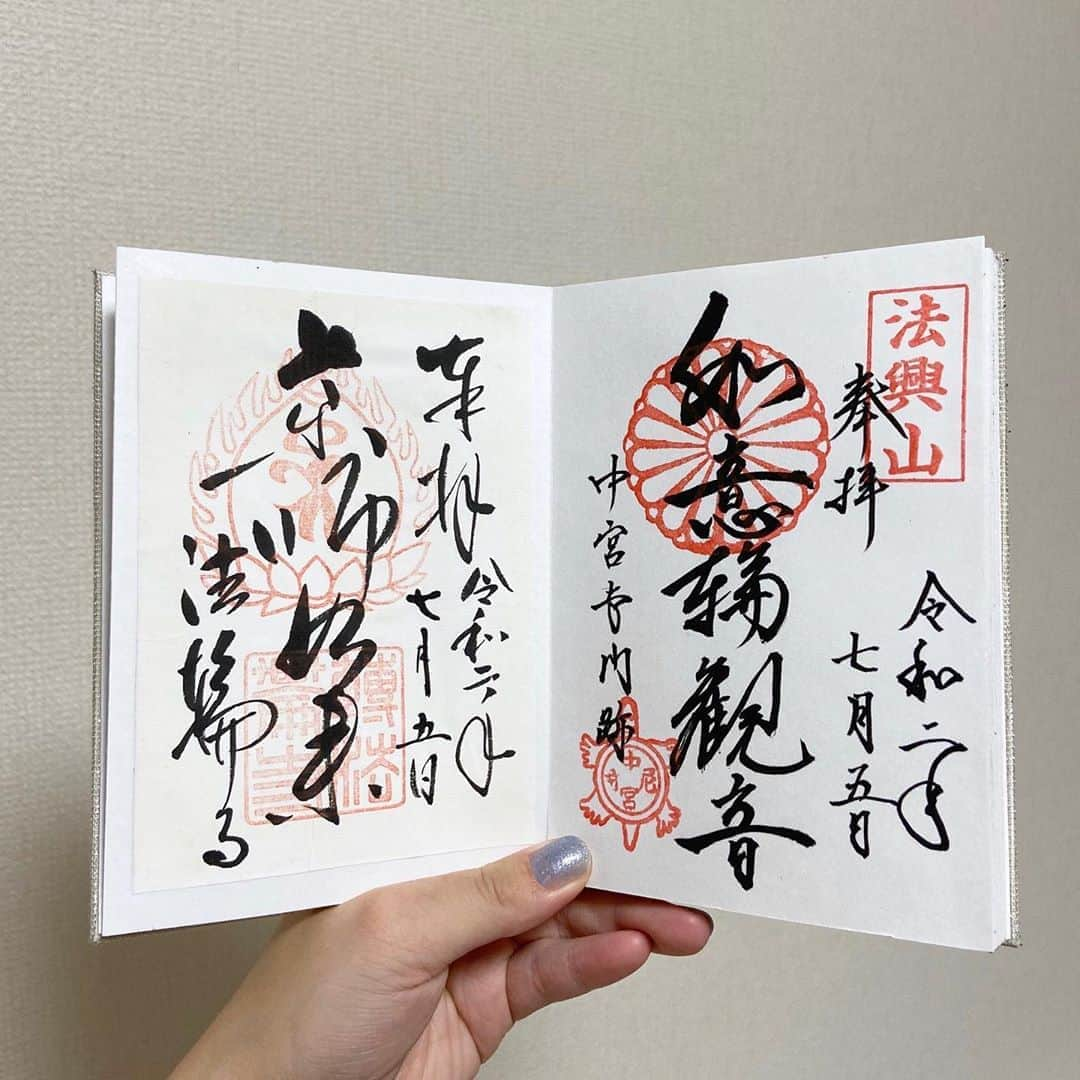 法興山
奉拝
令和二年
七月五日
如意輪観音
中宮寺門跡
中宮尼寺
奉拝
令和二年
七月五日
薬師如来
法輪寺